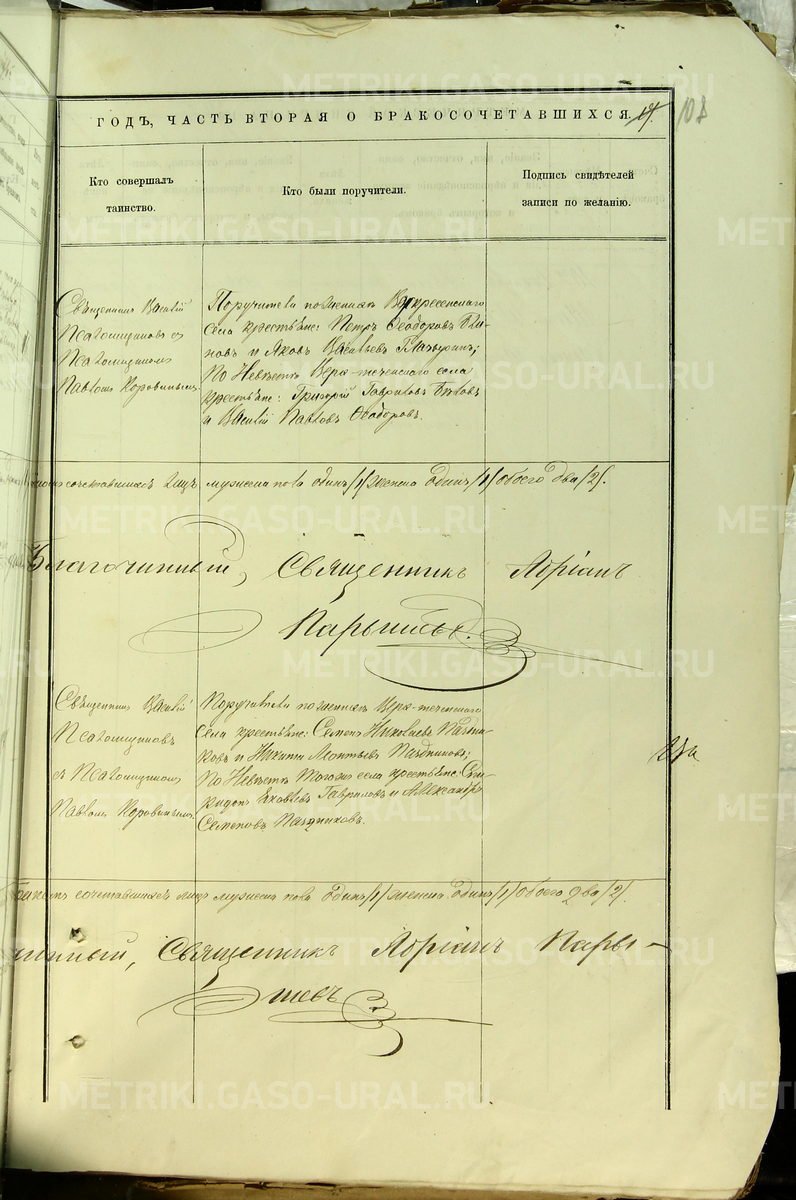 METRIKI.GASO-URAL.RU
ГОДЪ, ЧАСТЬ ВТОРАЯ О БРАКОСОЧЕТАВШИХСЯ.
108
Кто совершалъ
таинство.
Кто были поручители.
Подпись свидѣтелей
записи по желанію.
Священникъ Василій
Псаломщиковъ съ
Псаломщикомъ
Павломъ Коровинымъ
Поручители по женихѣ Воскресенскаго
села крестьяне: Петръ Ѳеодоровъ Бли-
новъ и Яковъ Васильевъ Глазыринъ;
По Невѣстѣ Верх-теченскаго села
крестьяне: Григорій Гавриловъ
и Василій Павловъ Ѳеодоровъ.
сочетавшихся лицъ мужеска пола одинъ /1/ женска одинъ /1/ обоего два /2/.
Благочинный, Священникъ Адріанъ
Парышевъ.
Священникъ Василій
Псаломщиковъ
съ Псаломщикомъ
Павломъ Коровинымъ.
Поручители по женихѣ Верх-теченскаго
села крестьяне: Семенъ Николаевъ Паздни-
ковъ и Никита Леонтьевъ Паздниковъ;
По Невѣстѣ тогоже села крестьяне: Спи-
ридонъ Яковлевъ Гавриловъ и Александръ
Семеновъ Паздниковъ.
сочетавшихся лицъ мужеска пола одинъ /1/ женска одинъ /1/ обоего два /2/.
Священникъ Адріанъ Пары-
шевъ